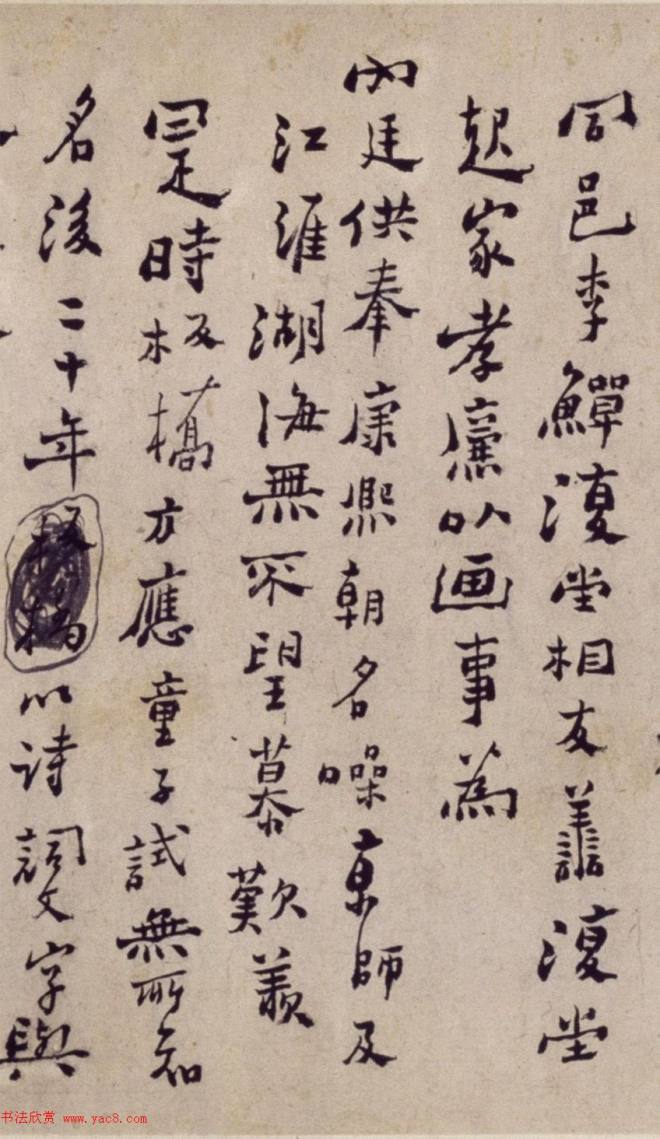 同邑李鱓復堂相友善復堂
起家孝廉以画事為
內廷供奉康熙朝名噪京師及
江淮湖海無不望慕歎羨
是時板橋方應童子試無所知
名後二十年以詩詞文字與
书法欣赏 www.yac8.com